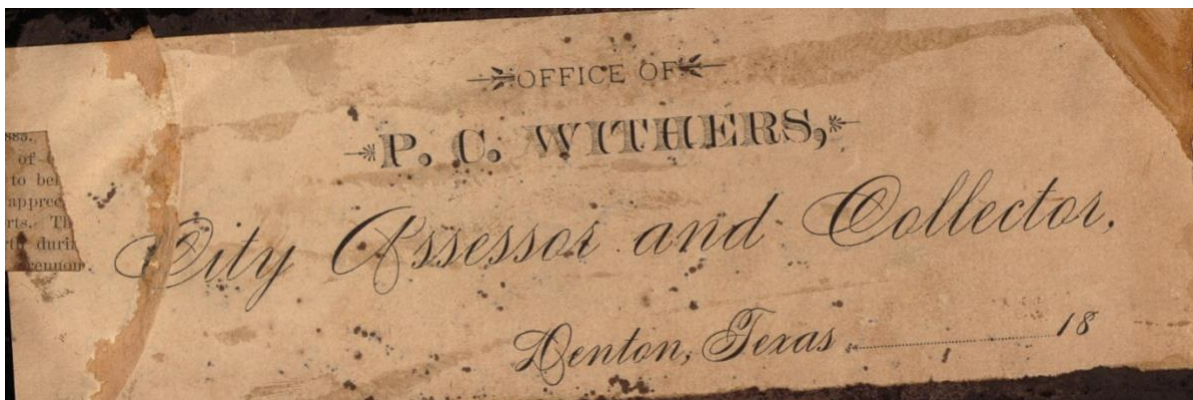 OFFICE OF
P. C. WITHERS,
City Assessor and Collector,
Denton, Texas 18
885.
of
to be
apprec
rts. Th
durin